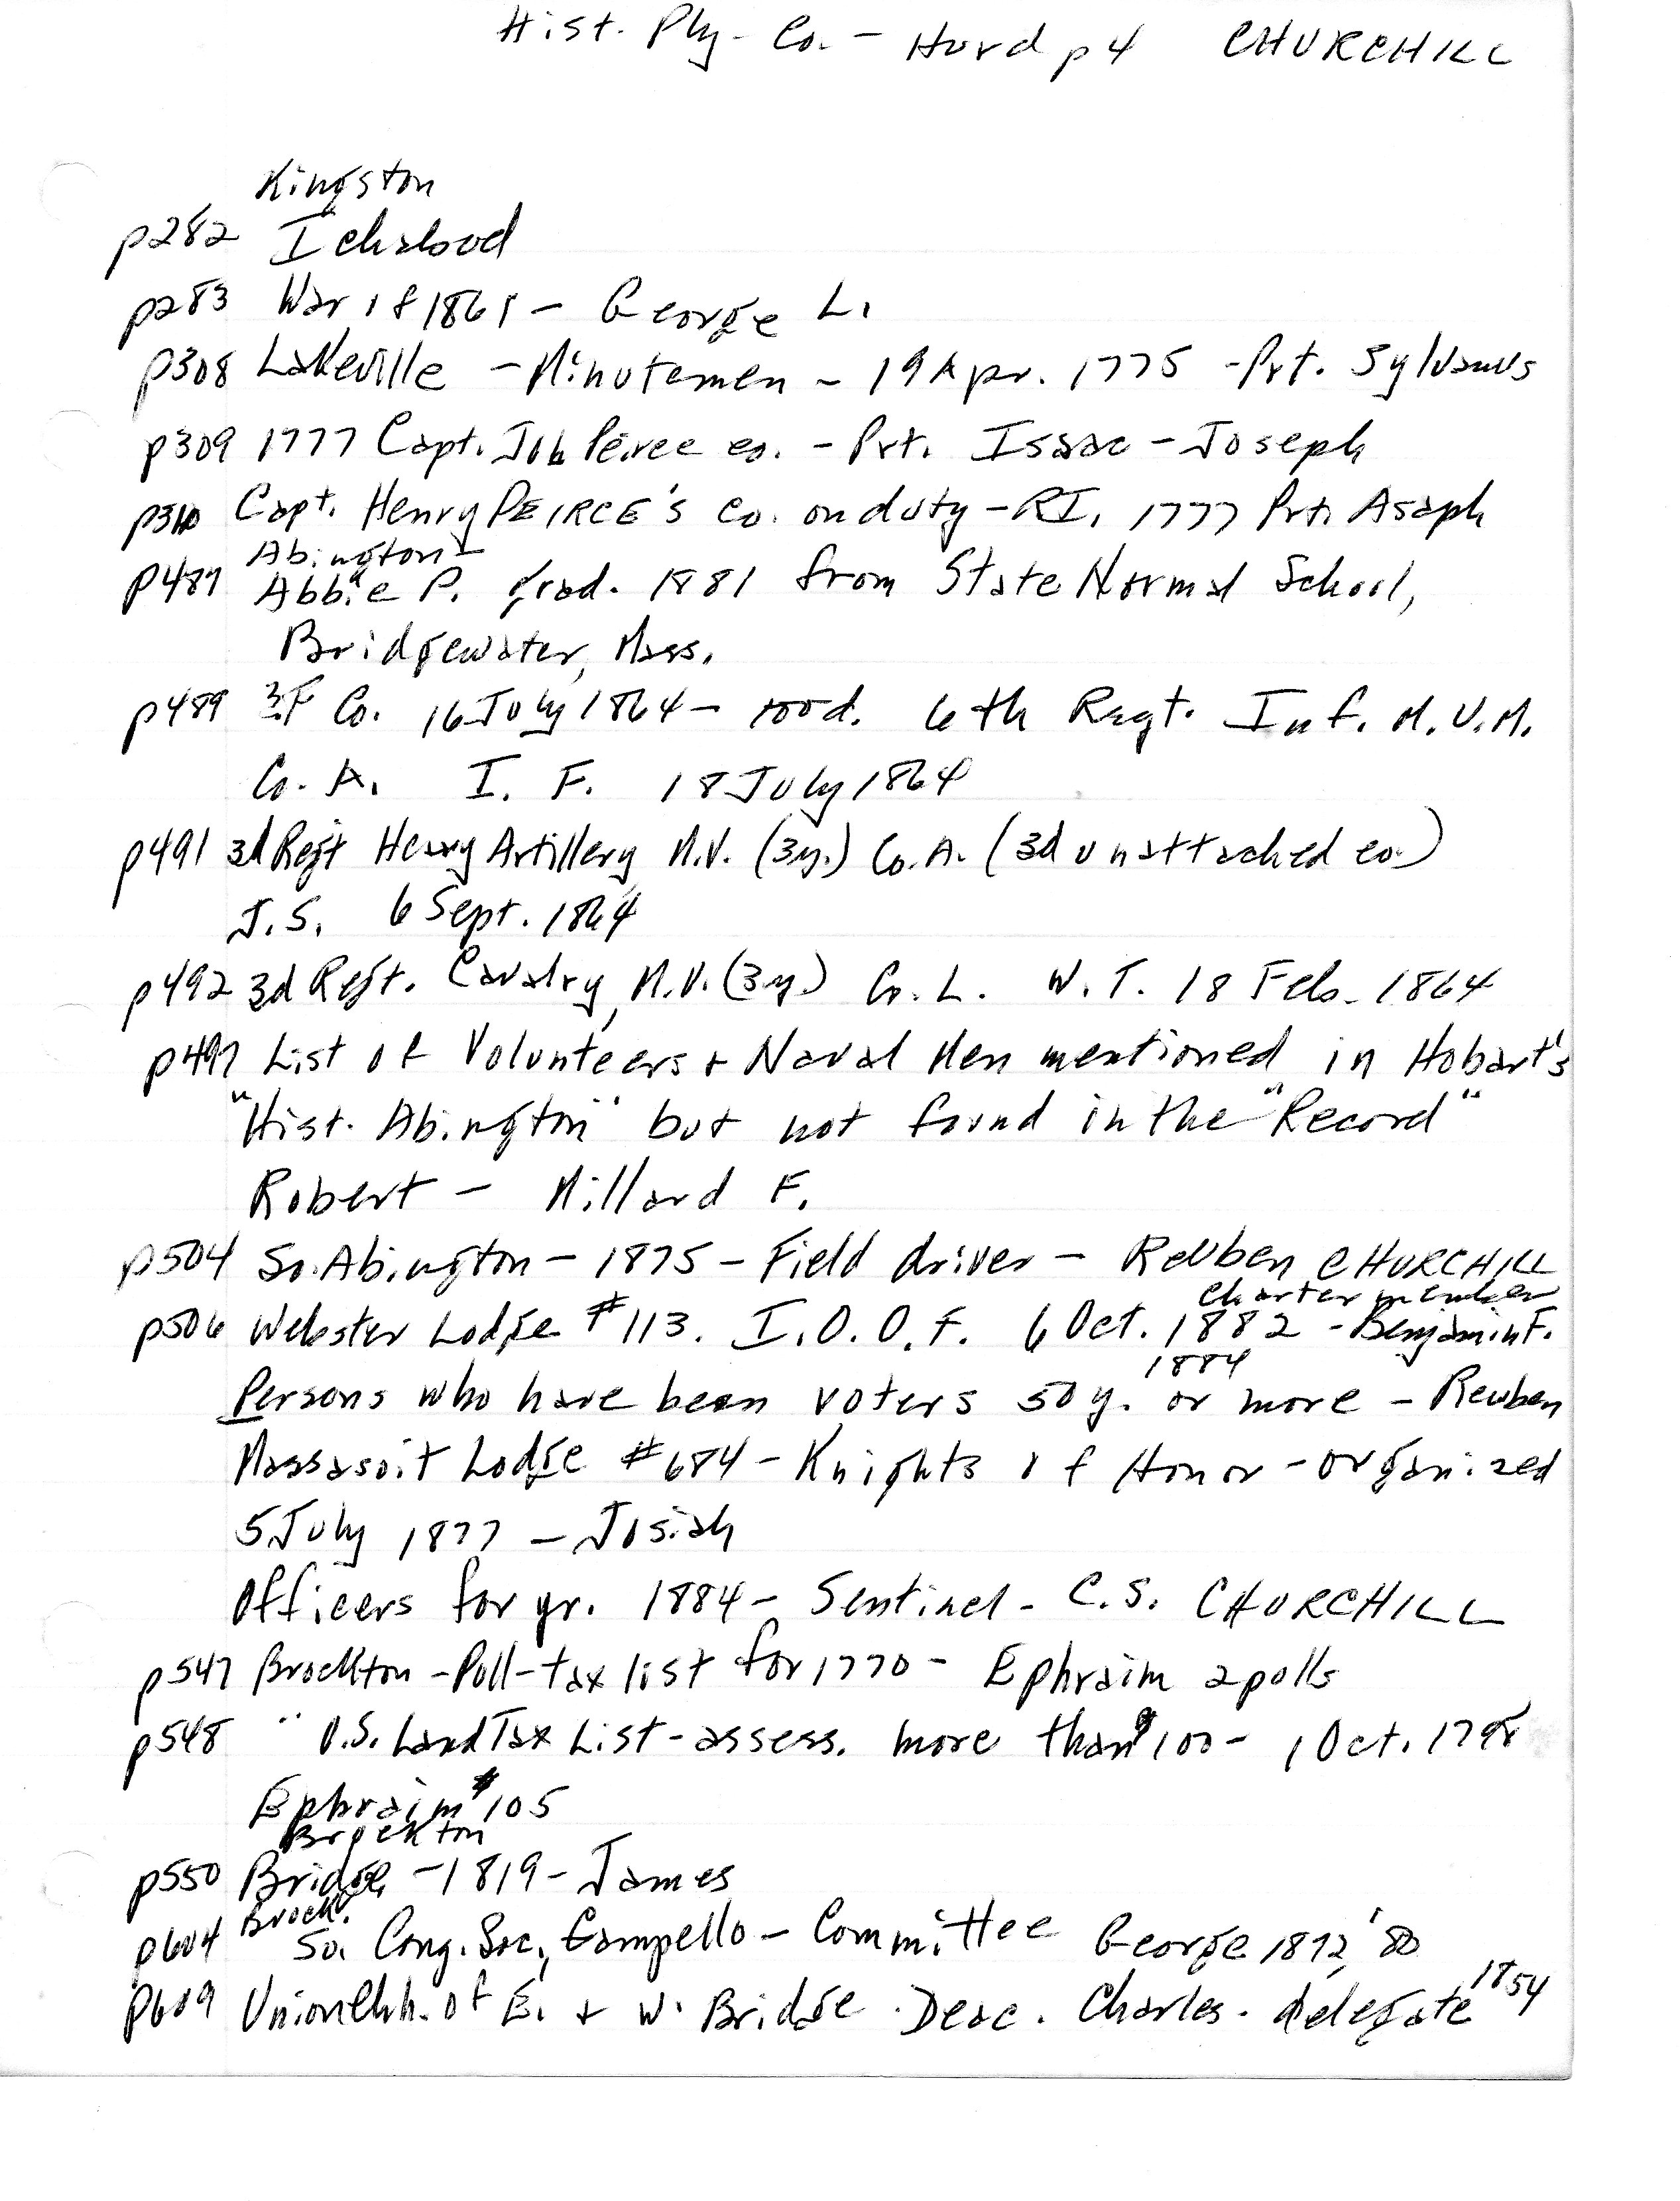 Hist. Ply. Co. - Hurd p4 CHURCHILL
Kingston
p282 Ichabod
p283 War of 1861 - George L.
p308 Lakeville - Minutemen - 19 Apr. 1775 - Prt. Sylvanus
p309 1777 Capt. Job Peirce co. - Prt. Isaac - Joseph
p310 Capt. Henry PEIRCE's co. on duty - RI, 1777 Prt. Asaph
Abington -
p487 Abbie P. grad. 1881 from State Normal School,
Bridgewater, Mass.
p489 Co. 16 July 1864 - 100d. 6th Regt. Inf. M.V.M.
Co. A. I. F. 18 July 1864
p491 3d Regt Heavy Artillery M.V. (3y.) Co. A. (3d unattached co.)
J.S. 6 Sept. 1864
p492 3d Regt. Cavalry, M.V. (3y.) Co. L. W. T. 18 Feb. 1864
p497 List of Volunteers & Naval Men mentioned in Hobart's
"Hist. Abington" but not found in the "Record"
Robert - Millard F.
p504 So. Abington - 1875 - Field driver - Reuben CHURCHILL
charter member
p506 Webster Lodge #113. I.O.O.F. 6 Oct. 1882 - Benjamin F.
1884
Persons who have been voters 50y. or more - Reuben
Massasoit Lodge #684 - Knights of Honor - organized
5 July 1877 - Josiah
Officers for yr. 1884 - Sentinel - C.S. CHURCHILL
p547 Brockton - Poll-tax list for 1770 - Ephraim 2 polls
p548 " U.S. Land Tax List - assess. more than $100 - 1 Oct. 1798
Ephraim $105
Brockton
p550 Bridge - 1819 - James
Brock.
p604 So. Cong. Soc., Campello - Committee George 1872, '80
p609 Union Chh. of E. & W. Bridge. Deac. Charles. delegate 1854